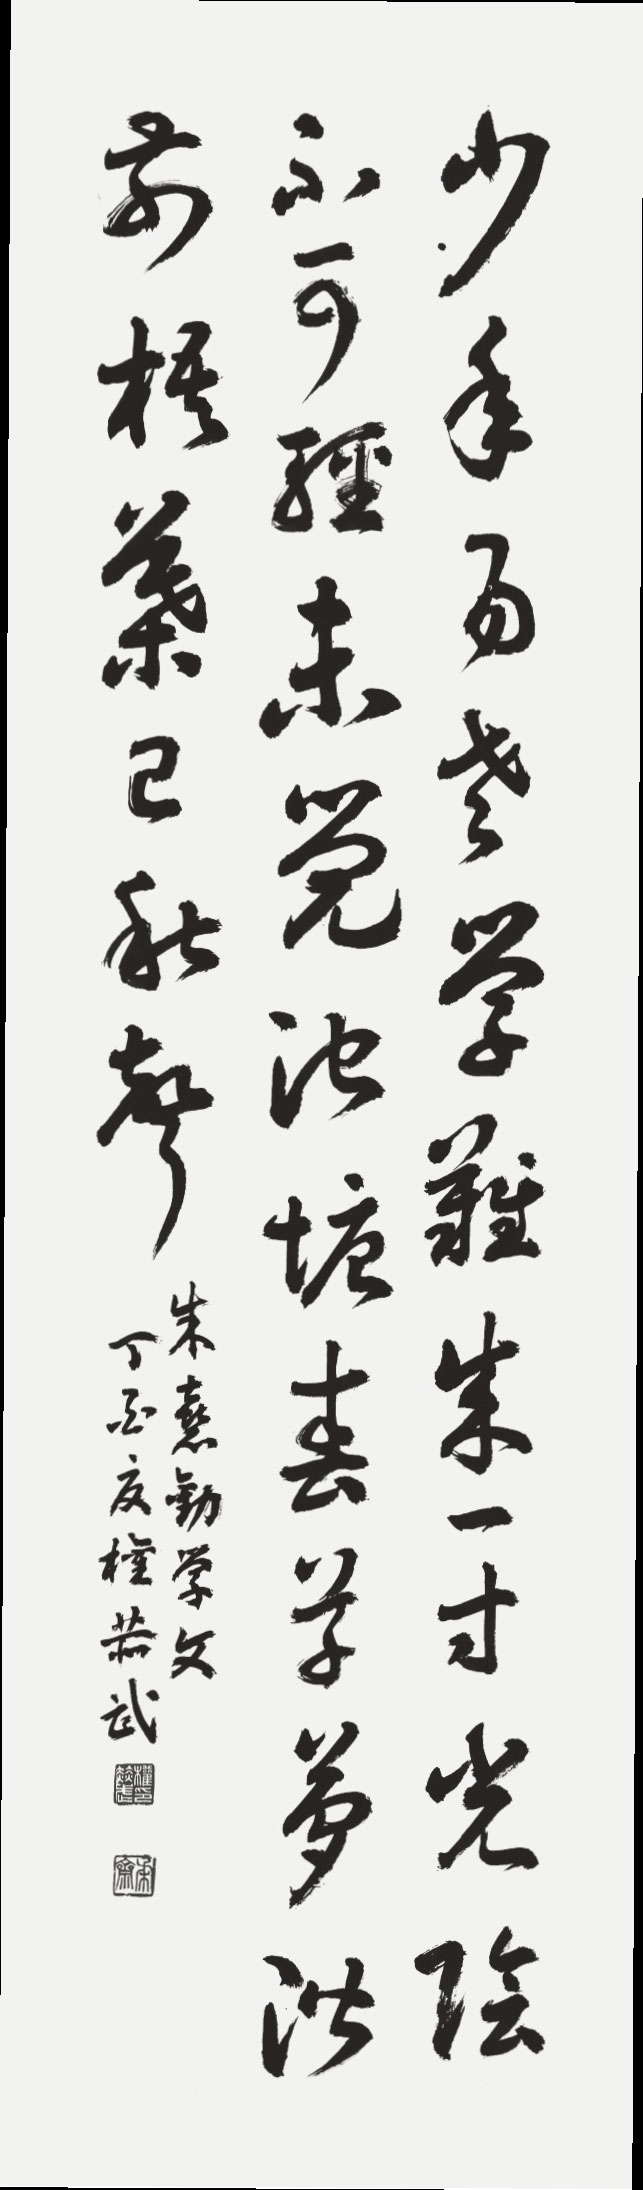 少年易老學難成一寸光陰
不可輕未覺池塘春草夢階
前梧葉已秋聲
朱熹勸學文
丁酉夏權恭武